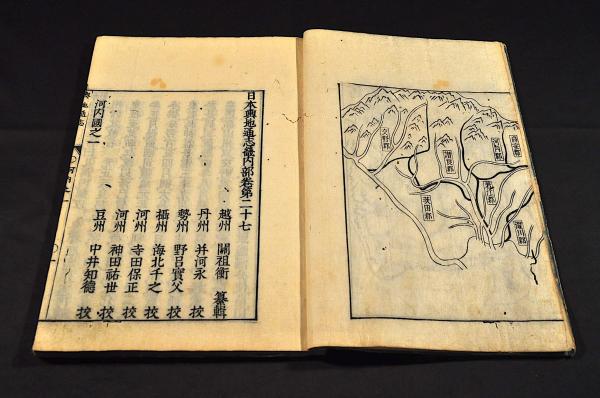 高安郡
河内郡
讃良郡
交野郡
澁川郡
若江郡
茨田郡
日本輿地通志畿内部卷第二十七
越州 關祖衡 纂輯
丹州 并河永 挍
勢州 野呂實父 挍
攝州 海北千之 挍
河州 寺田保正 挍
河州 神田祐世 挍
豆州 中井知德 挍
河内國之一